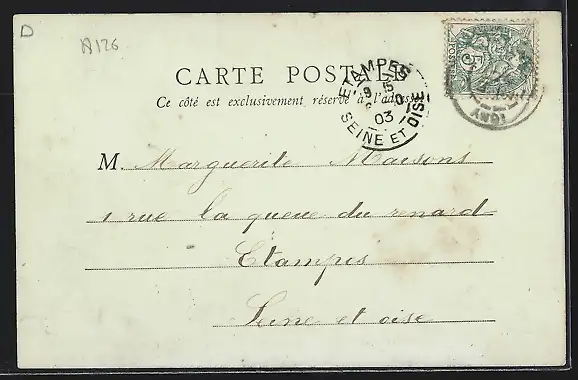 D
A126
CARTE POSTALE
Ce côté est exclusivement réservé à l'adresse
ETAMPES
9 15
03
SEINE ET OISE
5
M. Marguerite Maisons
1 rue la queue du renard
Etampes
Seine et oise